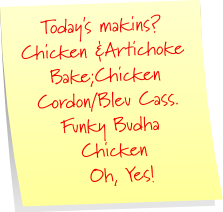 Today's makins?
Chicken &Artichoke
Bake;Chicken
Cordon/Bleu Cass.
Funky Budha
Chicken
Oh, Yes!